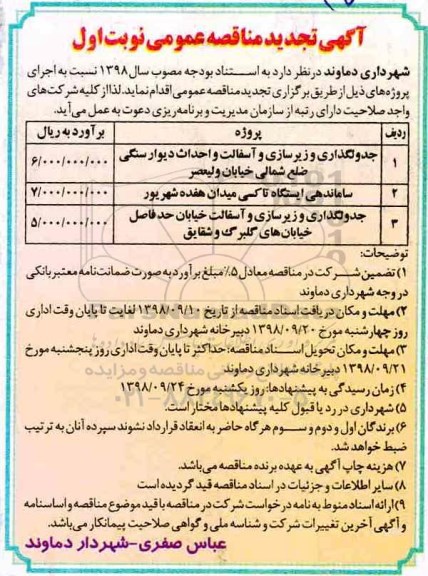 آگهی تجدید مناقصه عمومی نوبت اول
شهرداری دماوند در نظر دارد به استناد بودجه مصوب سال ۱۳۹۸ نسبت به اجرای
پروژه‌های ذیل از طریق برگزاری تجدید مناقصه عمومی اقدام نماید. لذا از کلیه شرکت‌های
واجد صلاحیت دارای رتبه از سازمان مدیریت و برنامه‌ریزی دعوت به عمل می‌آید.
ردیف پروژه برآورد به ریال
۱ جدولگذاری و زیرسازی و آسفالت و احداث دیوار سنگی ضلع شمالی خیابان ولیعصر ۶/۰۰۰/۰۰۰/۰۰۰
۲ ساماندهی ایستگاه تاکسی میدان هفده شهریور ۷/۰۰۰/۰۰۰/۰۰۰
۳ جدولگذاری و زیرسازی و آسفالت خیابان حد فاصل خیابان‌های گلبرگ و شقایق ۵/۰۰۰/۰۰۰/۰۰۰
توضیحات:
۱) تضمین شرکت در مناقصه معادل ۵٪ مبلغ برآورد به صورت ضمانت‌نامه معتبر بانکی
در وجه شهرداری دماوند
۲) مهلت و مکان دریافت اسناد مناقصه از تاریخ ۱۳۹۸/۰۹/۱۰ لغایت تا پایان وقت اداری
روز چهارشنبه مورخ ۱۳۹۸/۰۹/۲۰ دبیرخانه شهرداری دماوند
۳) مهلت و مکان تحویل اسناد مناقصه: حداکثر تا پایان وقت اداری روز پنجشنبه مورخ
۱۳۹۸/۰۹/۲۱ دبیرخانه شهرداری دماوند
۴) زمان رسیدگی به پیشنهادها: روز یکشنبه مورخ ۱۳۹۸/۰۹/۲۴
۵) شهرداری در رد یا قبول کلیه پیشنهادها مختار است.
۶) برندگان اول و دوم و سوم هرگاه حاضر به انعقاد قرارداد نشوند سپرده آنان به ترتیب
ضبط خواهد شد.
۷) هزینه چاپ آگهی به عهده برنده مناقصه می‌باشد.
۸) سایر اطلاعات و جزئیات در اسناد مناقصه قید گردیده است
۹) ارائه اسناد منوط به نامه درخواست شرکت در مناقصه با قید موضوع مناقصه و اساسنامه
و آگهی آخرین تغییرات شرکت و شناسه ملی و گواهی صلاحیت پیمانکار می‌باشد.
عباس صفری-شهردار دماوند